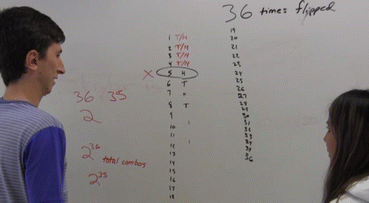 36 times flipped
1 T/H
2 T/H
3 T/H
4 T/H
X 5 H
6 T
7 H
8 T
9
10
11
12
13
14
15
16
17
18
19
20
21
22
23
24
25
26
27
28
29
30
31
36
36 35
2
2^36 total combos
2^35